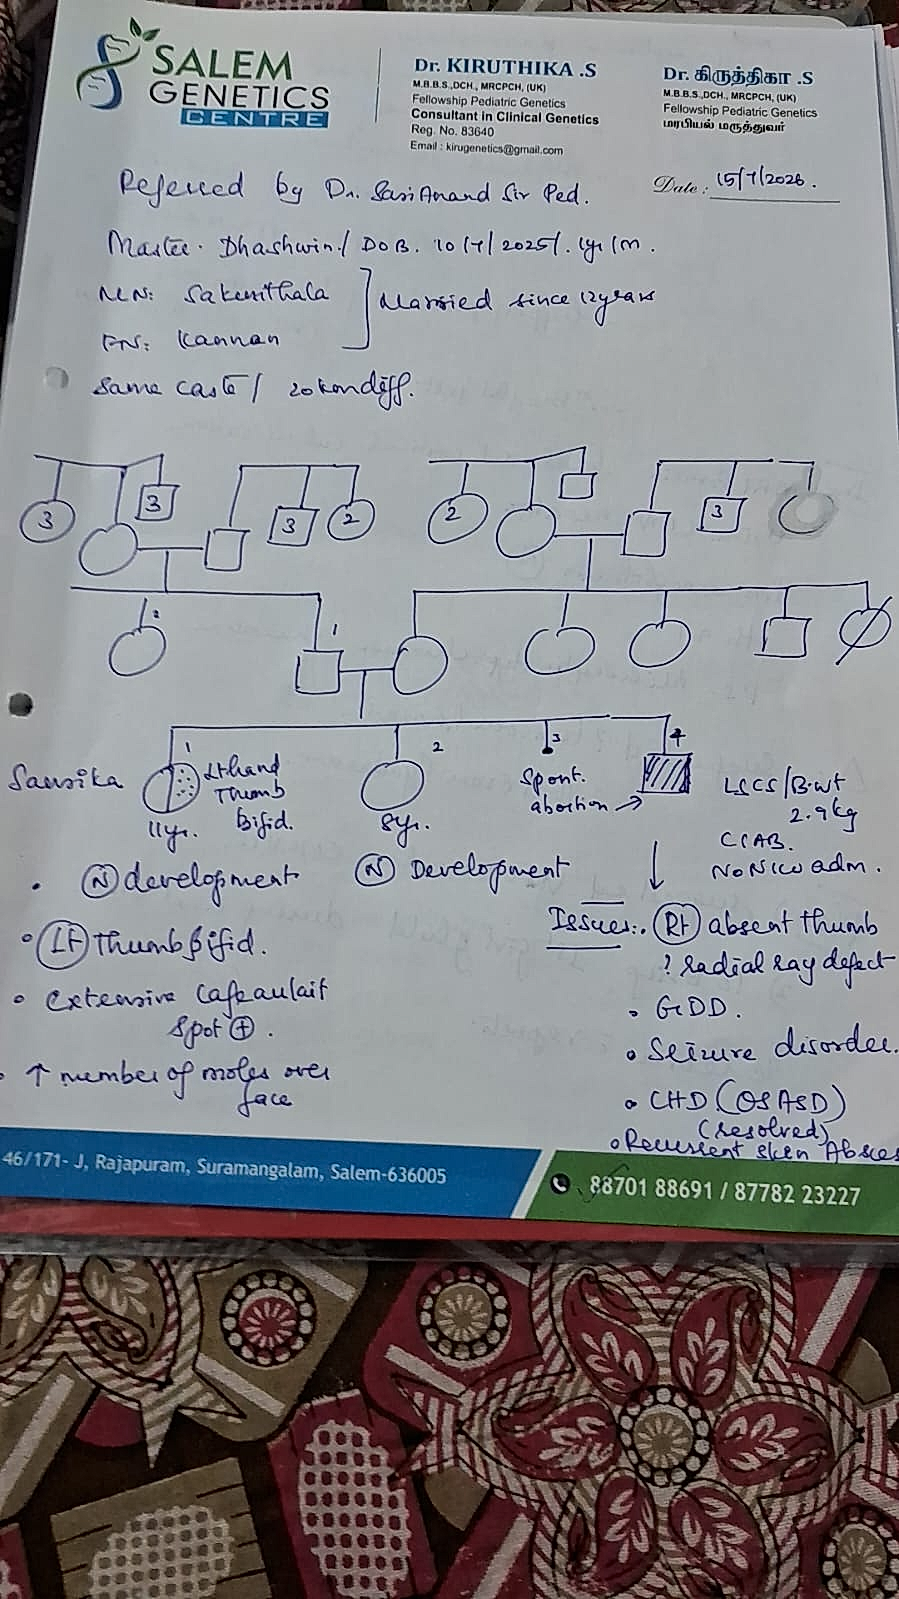 SALEM
GENETICS
CENTRE
Dr. KIRUTHIKA .S
M.B.B.S.,DCH., MRCPCH, (UK)
Fellowship Pediatric Genetics
Consultant in Clinical Genetics
Reg. No. 83640
Email : kirugenetics@gmail.com
Dr. கிருத்திகா .S
M.B.B.S.,DCH., MRCPCH, (UK)
Fellowship Pediatric Genetics
மரபியல் மருத்துவர்
Referred by Dr. SasiAnand Sir Ped.
Date : 15/7/2026.
Master. Dhashwin / DOB. 10/7/2025/. 1yr/m.
MN: Sakunthala
Married since 12years
FN: Kannan
Same caste / 20km diff.
3
3
3
2
2
3
2
1
1
2
3
4
Sansika
Lt hand
Thumb
Bifid.
11yr.
8yr.
Spont.
abortion
LSCS/B.wt
2.9kg
CIAB.
No NICU adm.
(N) development
(N) Development
Issues:. (Rt) absent thumb
? radial ray defect
(Lt) Thumb Bifid.
extensive Cafeaulait
spot ⊕.
GDD.
Seizure disorder.
↑ number of moles over
face
CHD (OS ASD)
(resolved)
Recurrent skin Absces
46/171- J, Rajapuram, Suramangalam, Salem-636005
88701 88691 / 87782 23227